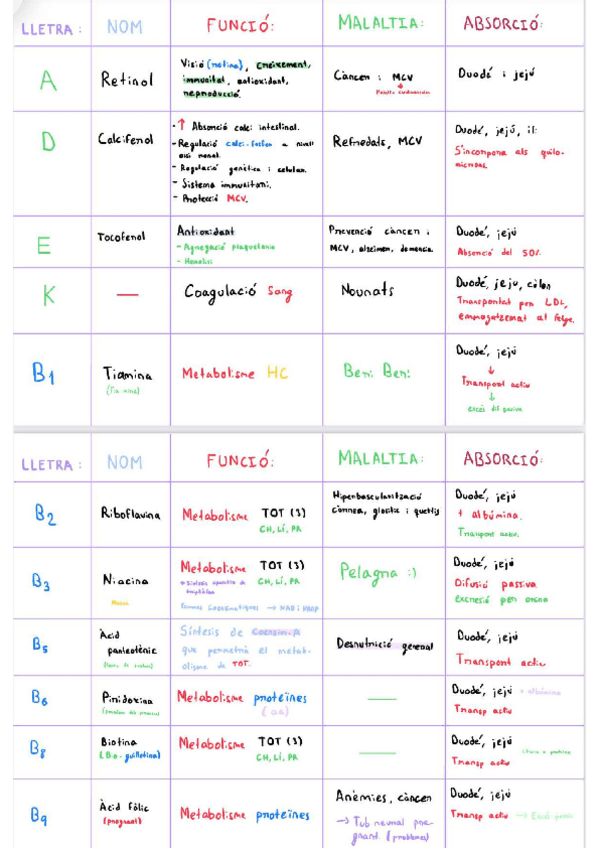 LLETRA: NOM FUNCIÓ: MALALTIA: ABSORCIÓ:
A
Retinol
Visió (retina), creixement,
immunitat, antioxidant,
reproducció.
Càncer i MCV
Duodé i jejú
D
Calciferol
↑ Absorció calci intestinal.
- Regulació calci-fosfor a nivell
ossi renal.
- Regulació genètica i celular.
- Sistema immunitari.
- Protecció MCV.
Refredats, MCV
Duodé, jejú, ili
S'incorpora als quilo-
microns.
E
Tocoferol
Antioxidant
- Agregació plaquetaria
- Hemòlisi
Prevenció càncer i
MCV, alzeimer, demencia.
Duodé, jejú
Absorció del 50%.
K
—
Coagulació Sang
Nounats
Duodé, jeju, còlon
Transportat per LDL,
emmagatzemat al fetge.
B1
Tiamina
Metabolisme HC
Beri Beri
Duodé, jejú
↓
Transport actiu
↓
LLETRA: NOM FUNCIÓ: MALALTIA: ABSORCIÓ:
B2
Riboflavina
Metabolisme TOT (3)
CH, Lí, PR
Duodé, jejú
+ albúmina.
Transport actiu.
B3
Niacina
Metabolisme TOT (3)
CH, Lí, PR
→ NAD i NADP
Pelagra :)
Duodé, jejú
Difusió passiva
excreció per orina
B5
Àcid
pantotènic
Síntesis de Coenzim-A
que permetrà el metab-
olisme de TOT.
Desnutrició general
Duodé, jejú
Transport actiu
B6
Piridoxina
Metabolisme proteïnes
(aa)
—
Duodé, jejú + albúmina
Transp actiu
B8
Biotina
(Bio-guillotina)
Metabolisme TOT (3)
CH, Lí, PR
—
Duodé, jejú
Transp actiu
B9
Àcid fòlic
(pregnant)
Metabolisme proteïnes
Anèmies, càncer
→ Tub neural pre-
gnant. (problemes)
Duodé, jejú
Transp actiu